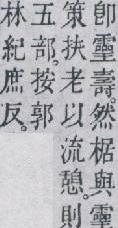 卽靈壽。然椐與靈
策扶老以流憩。則
五部。按郭
林紀庶反。